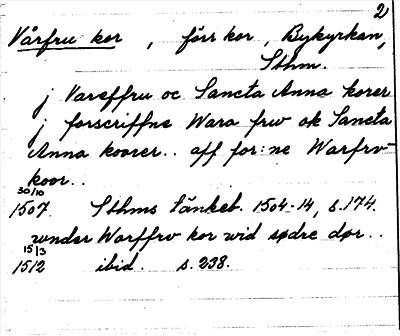 2
Vårfru kor, förr kor, Bykyrkan,
Sthm.
j Vareffru oc Sancta Anna korer
j forscriffne Wara frw ok Sancta
Anna koorer.. aff for:ne Warfrv
koor..
30/10
1507. Sthms tänkeb. 1504-14, s. 174.
wnder Warffrv kor wid sødre dør..
15/3
1512 ibid. s. 238.